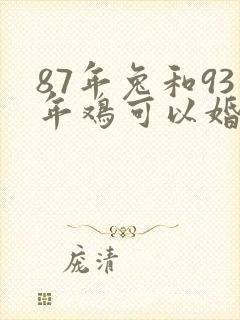 87年兔和93
年鸡可以婚
庞清